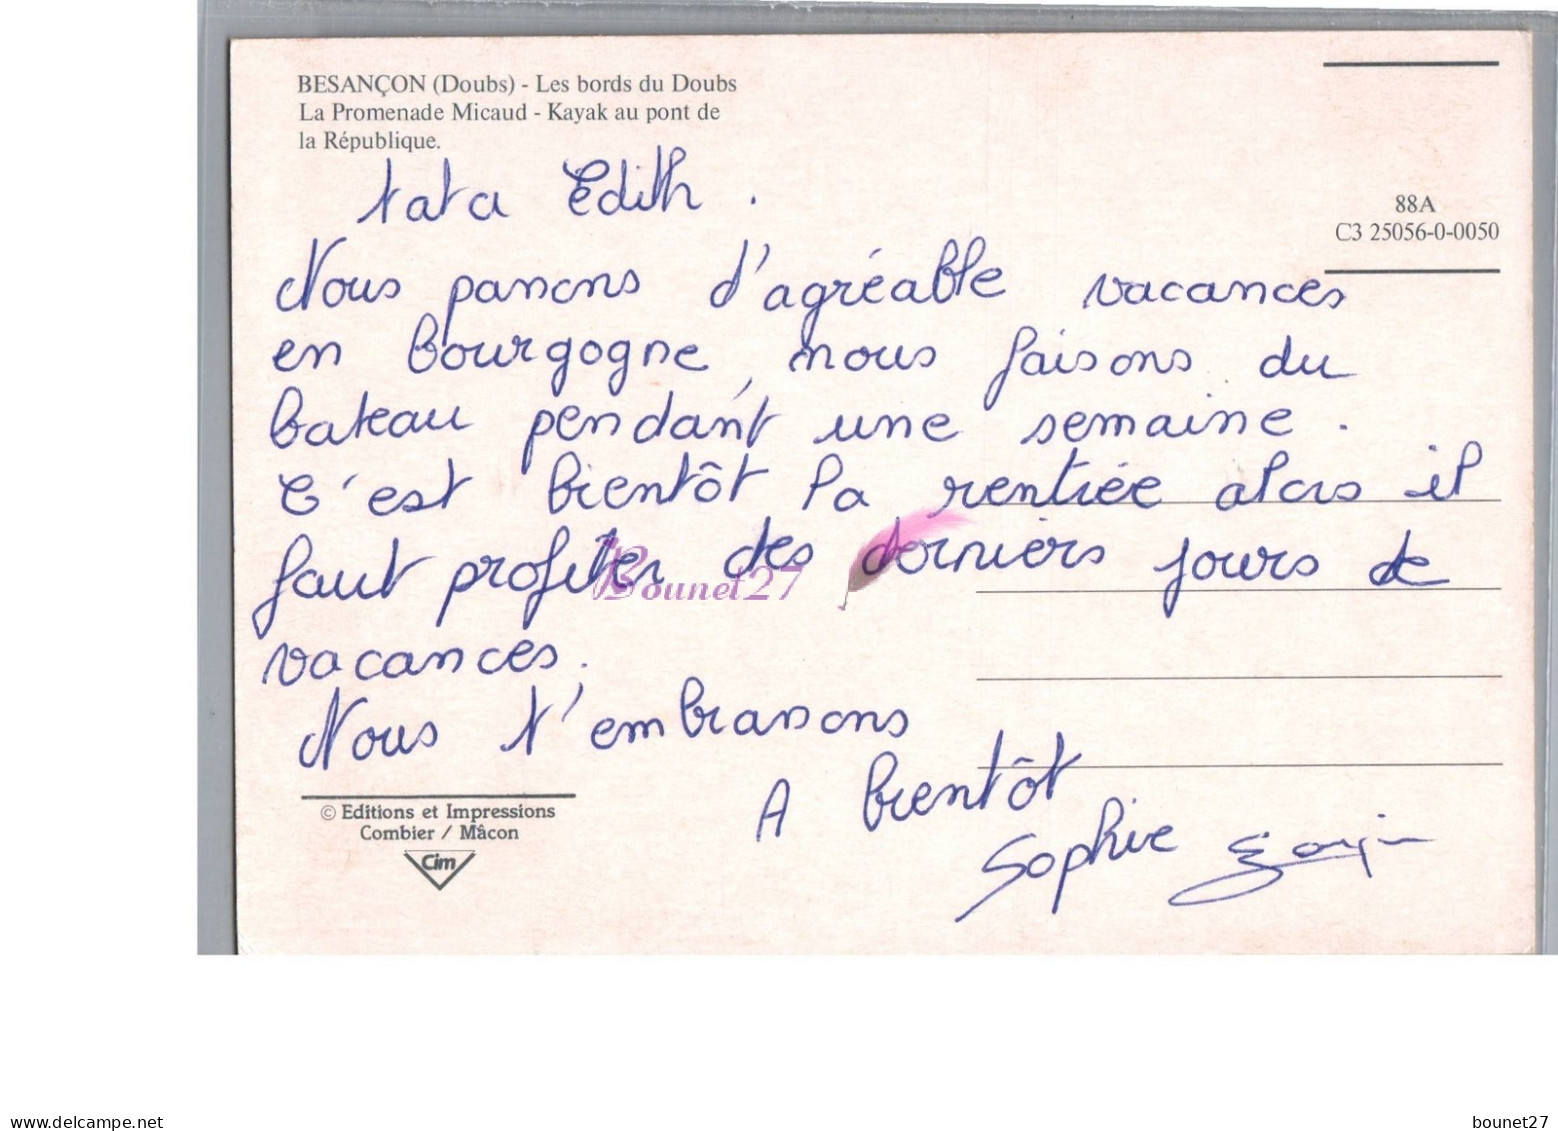 BESANÇON (Doubs) - Les bords du Doubs
La Promenade Micaud - Kayak au pont de
la République.
88A
C3 25056-0-0050
tata Edith .
Nous passons d'agréable vacances
en bourgogne, nous faisons du
bateau pendant une semaine.
C'est bientôt la rentrée alors il
faut profiter des derniers jours de
vacances.
Nous t'embrassons
A bientôt
Sophie
Bounet27
© Editions et Impressions
Combier / Mâcon
Cim
www.delcampe.net
bounet27